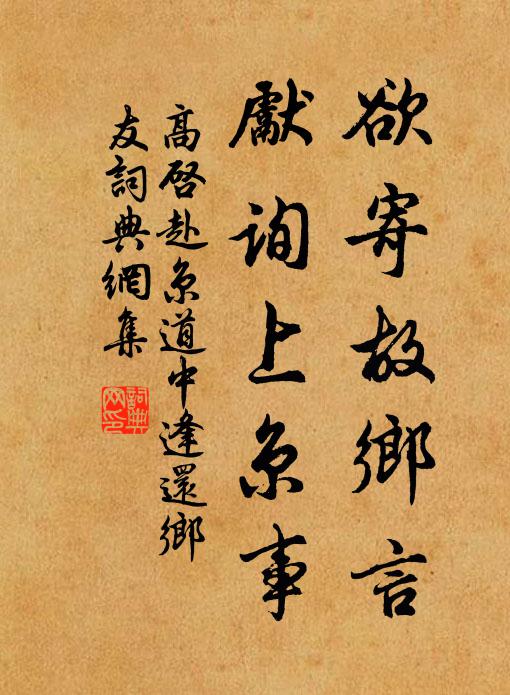 欲寄故鄉言
獻詢上京事
高啓赴京道中逢還鄉
友詞典網集
詞典
网印